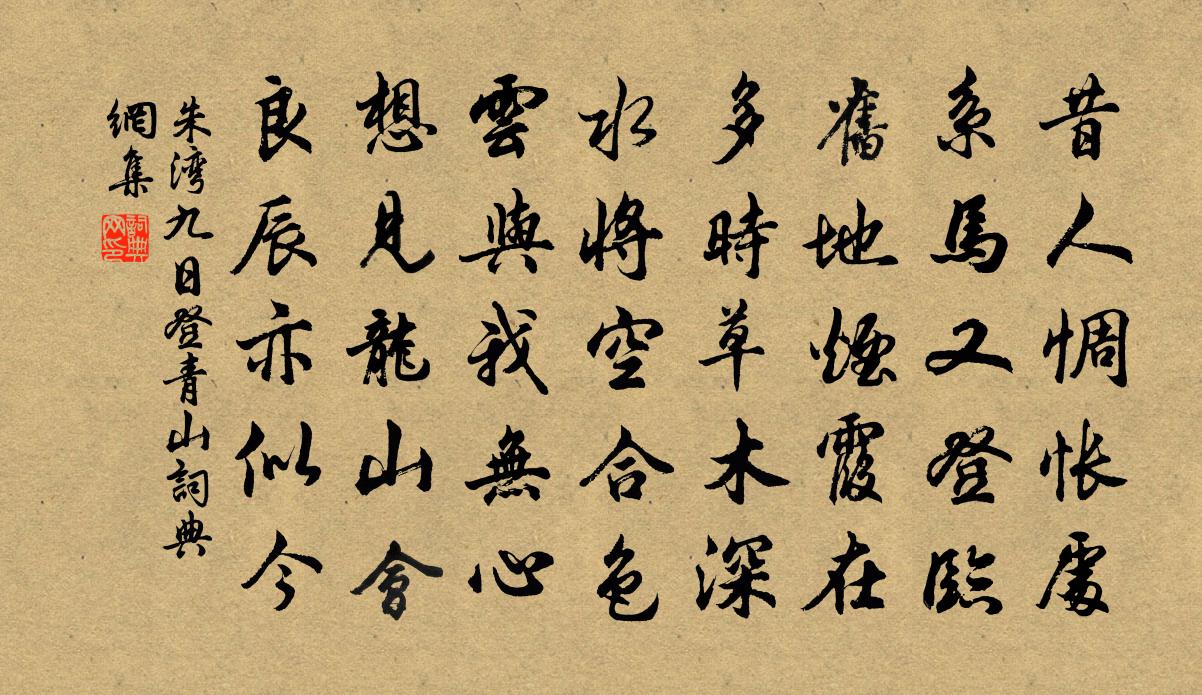 昔人惆悵處
系馬又登臨
舊地煙霞在
多時草木深
水將空合色
雲與我無心
想見龍山會
良辰亦似今
朱湾九日登青山詞典
網集
詞典
网印